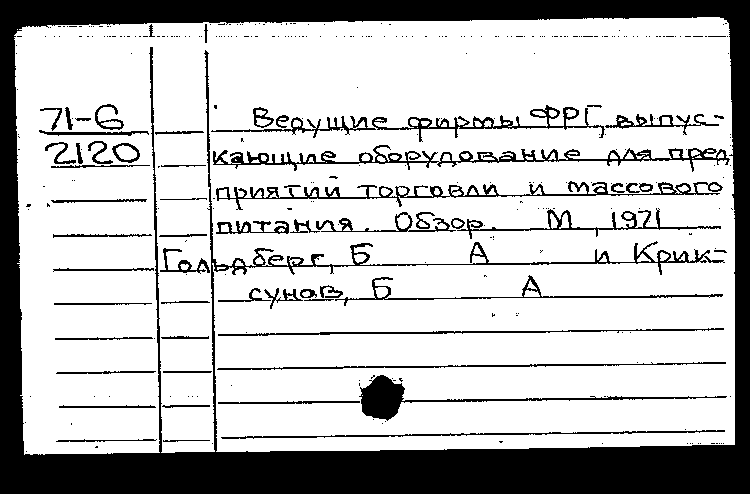 71-6
2120
Ведущие фирмы ФРГ, выпус-
кающие оборудование для пред
приятий торговли и массового
питания. Обзор. М, 1971
Гольдберг, Б А и Крик-
сунав, Б А